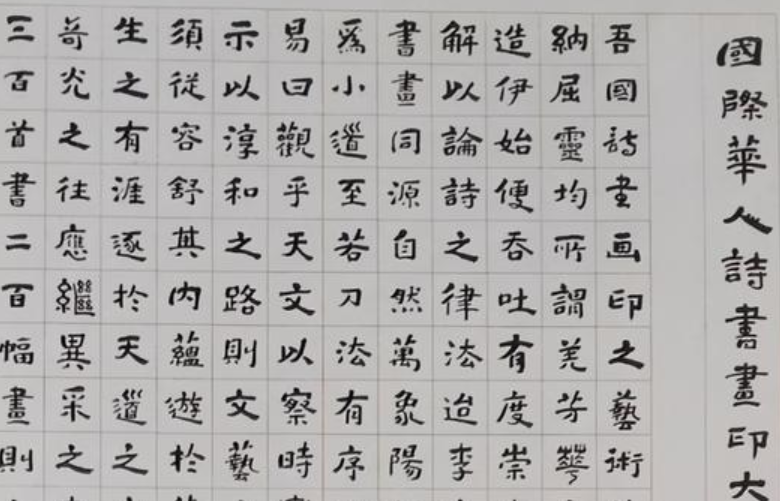 國際華人詩書畫印大
吾國詩書画印之藝術
納屈靈均所謂羌芳華
造伊始便吞吐有度崇
解以論詩之律法迨李
書畫同源自然萬象陽
為小道至若刀法有序
易曰觀乎天文以察時
示以淳和之路則文藝
須從容舒其内蘊遊於
生之有涯逐於天道之
奇光之往應繼異采之
三百首書二百幅畫則